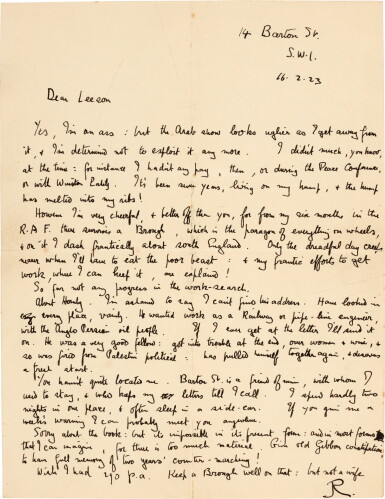 14 Barton St.
S.W.1.
16. 2. 23
Dear Leeson
Yes, I'm an ass: but the Arab show looks uglier as I get away from
it, & I'm determined not to exploit it any more. I didn't much, you know,
at the time: for instance I hadn't any pay, then, or during the Peace Conference,
or with Winston Early. It's been seven years, living on my hump, & the hump
has melted into my ribs!
However I'm very cheerful, & better off than you, for from my six months in the
R.A.F. there survives a Brough, which is the paragon of everything on wheels,
& on it I dash frantically about south England. Only the dreadful day creeps
nearer when I'll have to eat the poor beast: & my frantic efforts to get
work, where I can keep it, are explained!
So far not any progress in the work-search.
About Hornby. I'm ashamed to say I can't find his address. Have looked in
every place, vainly. He wanted work as a Railway or pipe-line engineer,
with the Anglo Persian oil people. If I ever get at the letter I'll send it
on. He was a very good fellow: got into trouble at the end, over women & wine, &
so was fired from Palestine political: has pulled himself together again, & deserves
a fresh start.
You haven't quite located me. Barton St. is a friend of mine, with whom I
used to stay, & who keeps my letters till I call. I spend hardly two
nights in one place, & often sleep in a side-car. If you give me a
week's warning I can probably meet you anywhere.
Sorry about the book: but it's impossible in its present form: and in most forms
that I can imagine, for there is too much material. Give old Gibbon constipation
to have full memory of two years' counter-marching!
Wish I had 270 p.a. Keep a Brough well on that: but not a wife.
R.